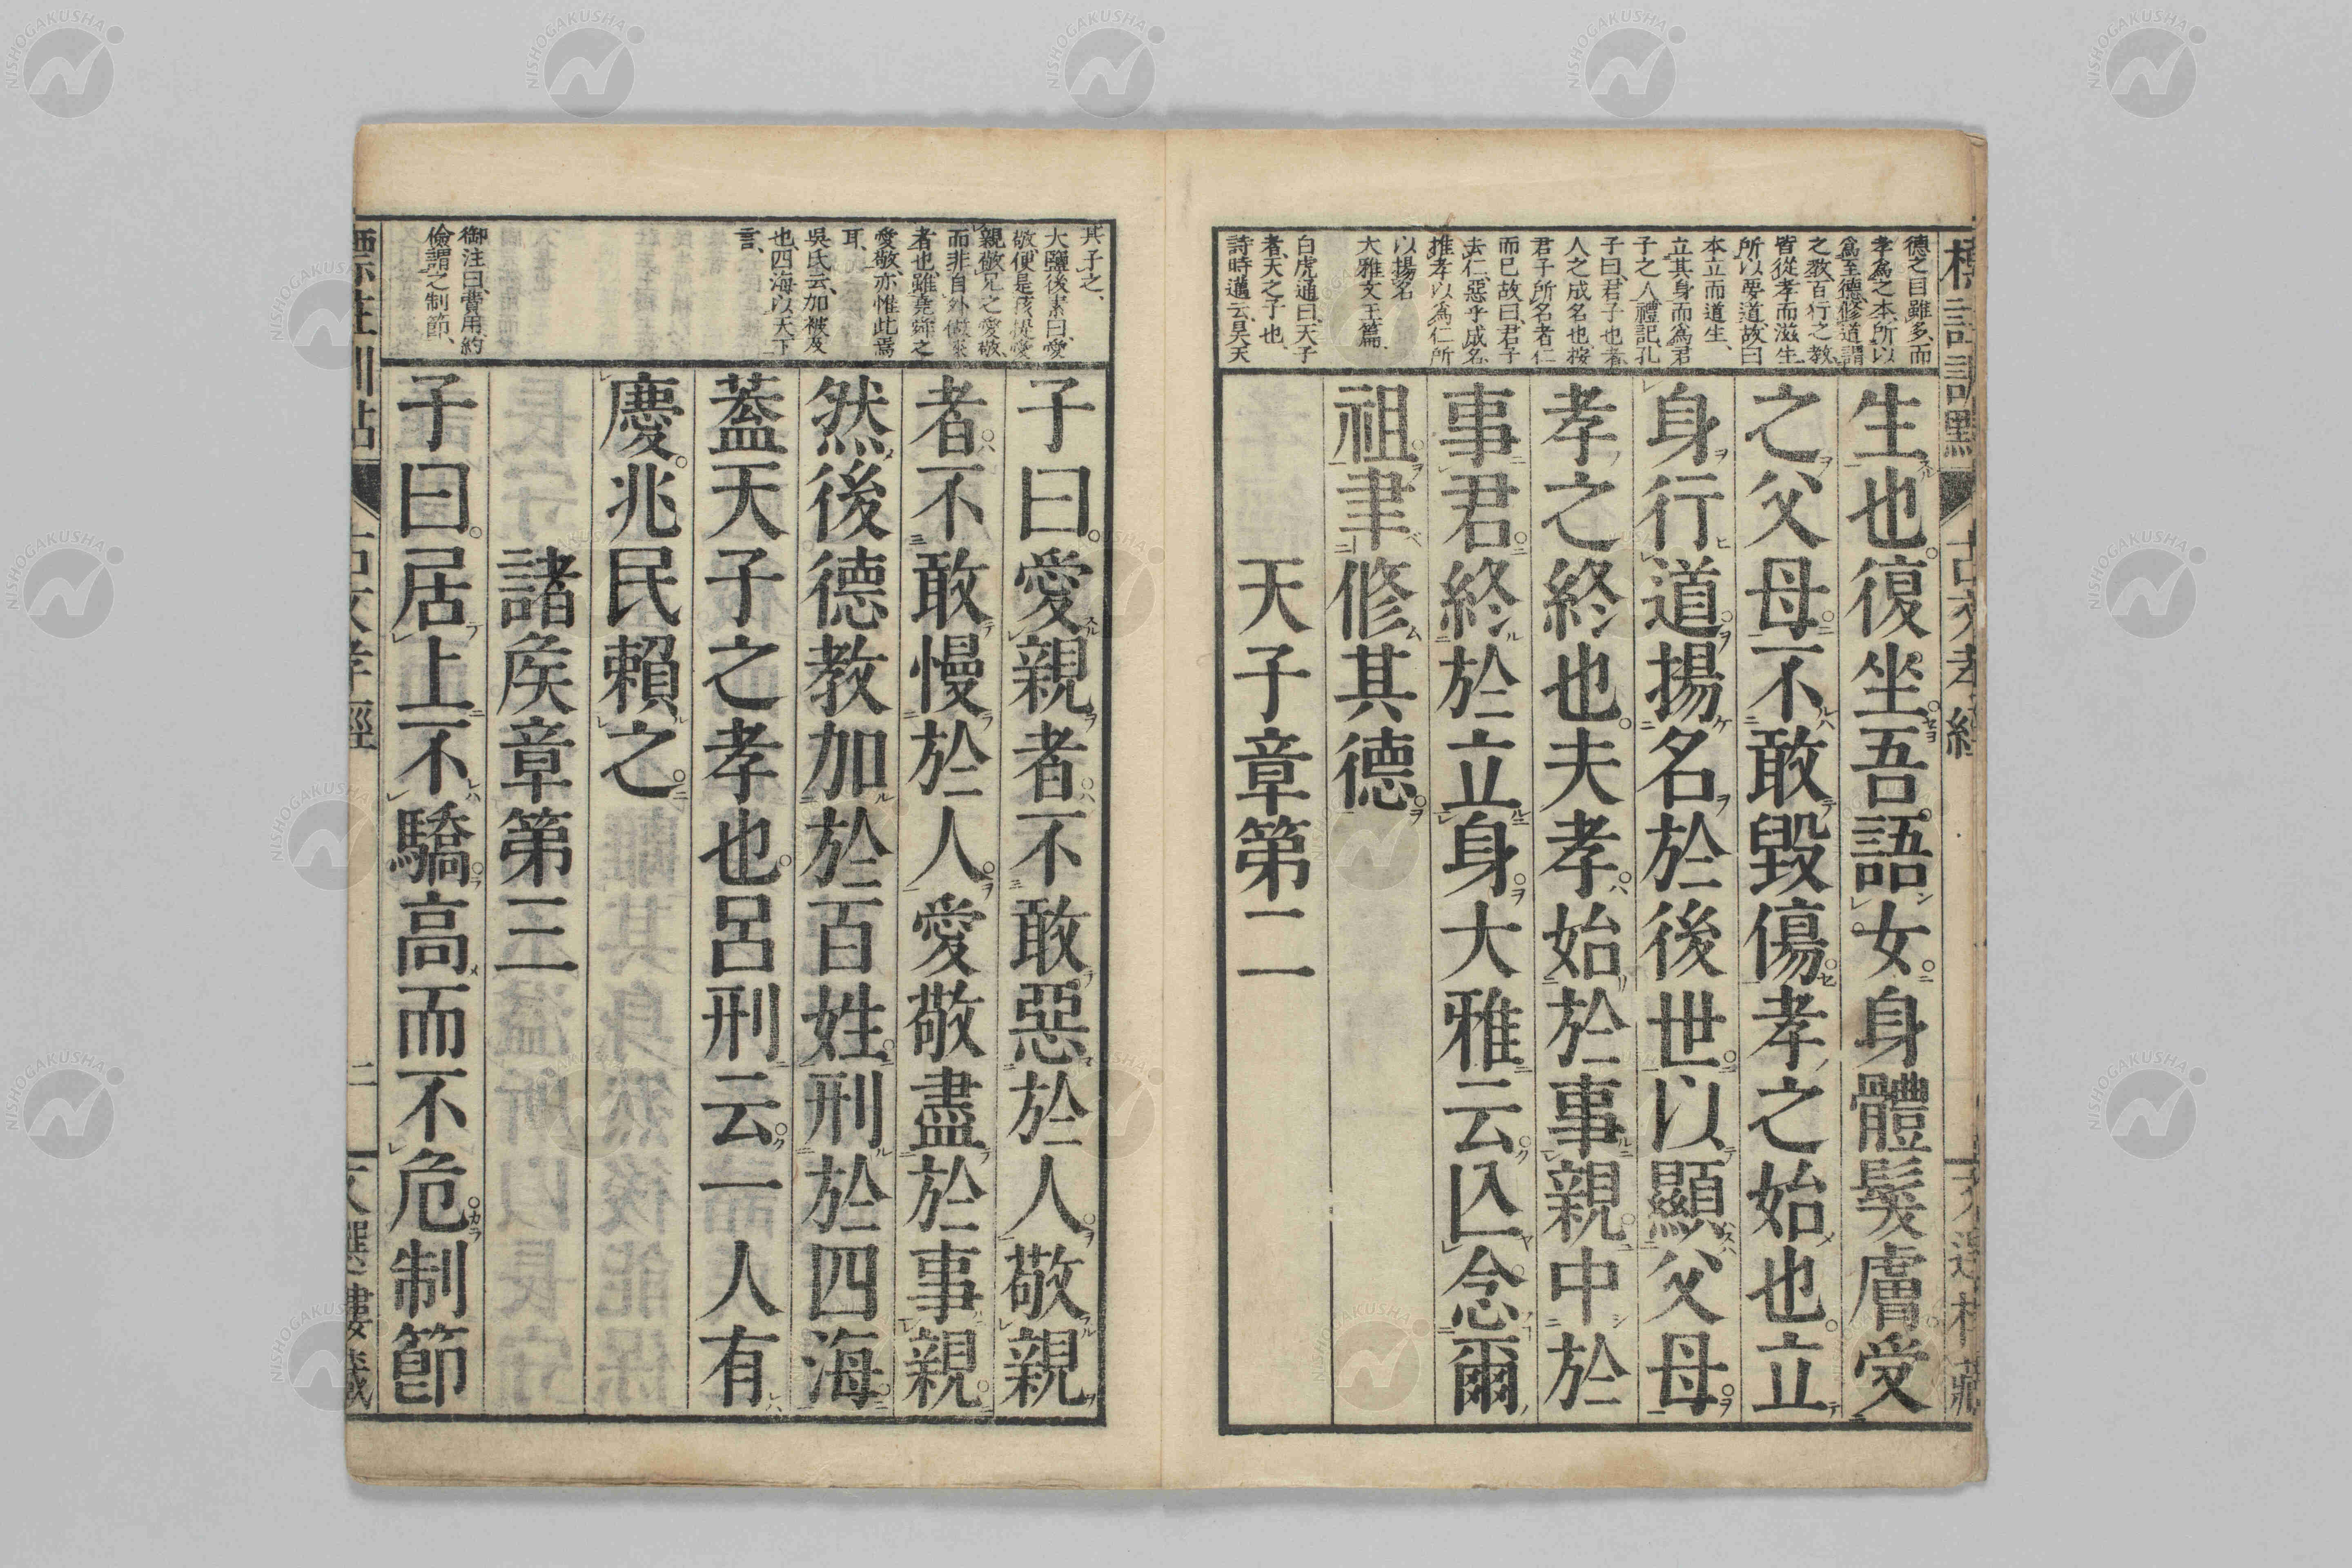 德之目雖多、而
孝爲之本、所以
爲至德、修道、謂
之教、百行之教、
皆從孝而滋生、
所以要道、故曰
本立而道生、
立其身而爲君
子之人禮記、孔
子曰、君子也者、
人之成名也、按
君子所名者仁
而已、故曰、君子
去仁、惡乎成名、
推孝以爲仁、所
以揚名
大雅文王篇
白虎通曰、天子
者、天之子也、
詩時邁云、昊天
生也。復坐。吾語女。身體髮膚受
之父母。不敢毀傷。孝之始也。立
身行道。揚名於後世。以顯父母。
孝之終也。夫孝。始於事親。中於
事君。終於立身。大雅云。亾念爾
祖。聿修其德。
天子章第二
其子之、
大鹽後素曰、愛
敬便是孩提愛
親敬兄之愛敬、
而非自外做來
者也、雖堯舜之
愛敬、亦惟此焉
耳、
吳氏云、加、被及
也、四海、以天下
言、
御注曰、費用約
儉、謂之制節、
子曰。愛親者。不敢惡於人。敬親
者。不敢慢於人。愛敬盡於事親。
然後德教加於百姓。刑於四海。
蓋天子之孝也。呂刑云。一人有
慶。兆民賴之。
諸矦章第三
子曰。居上不驕。高而不危。制節
古文孝經
二